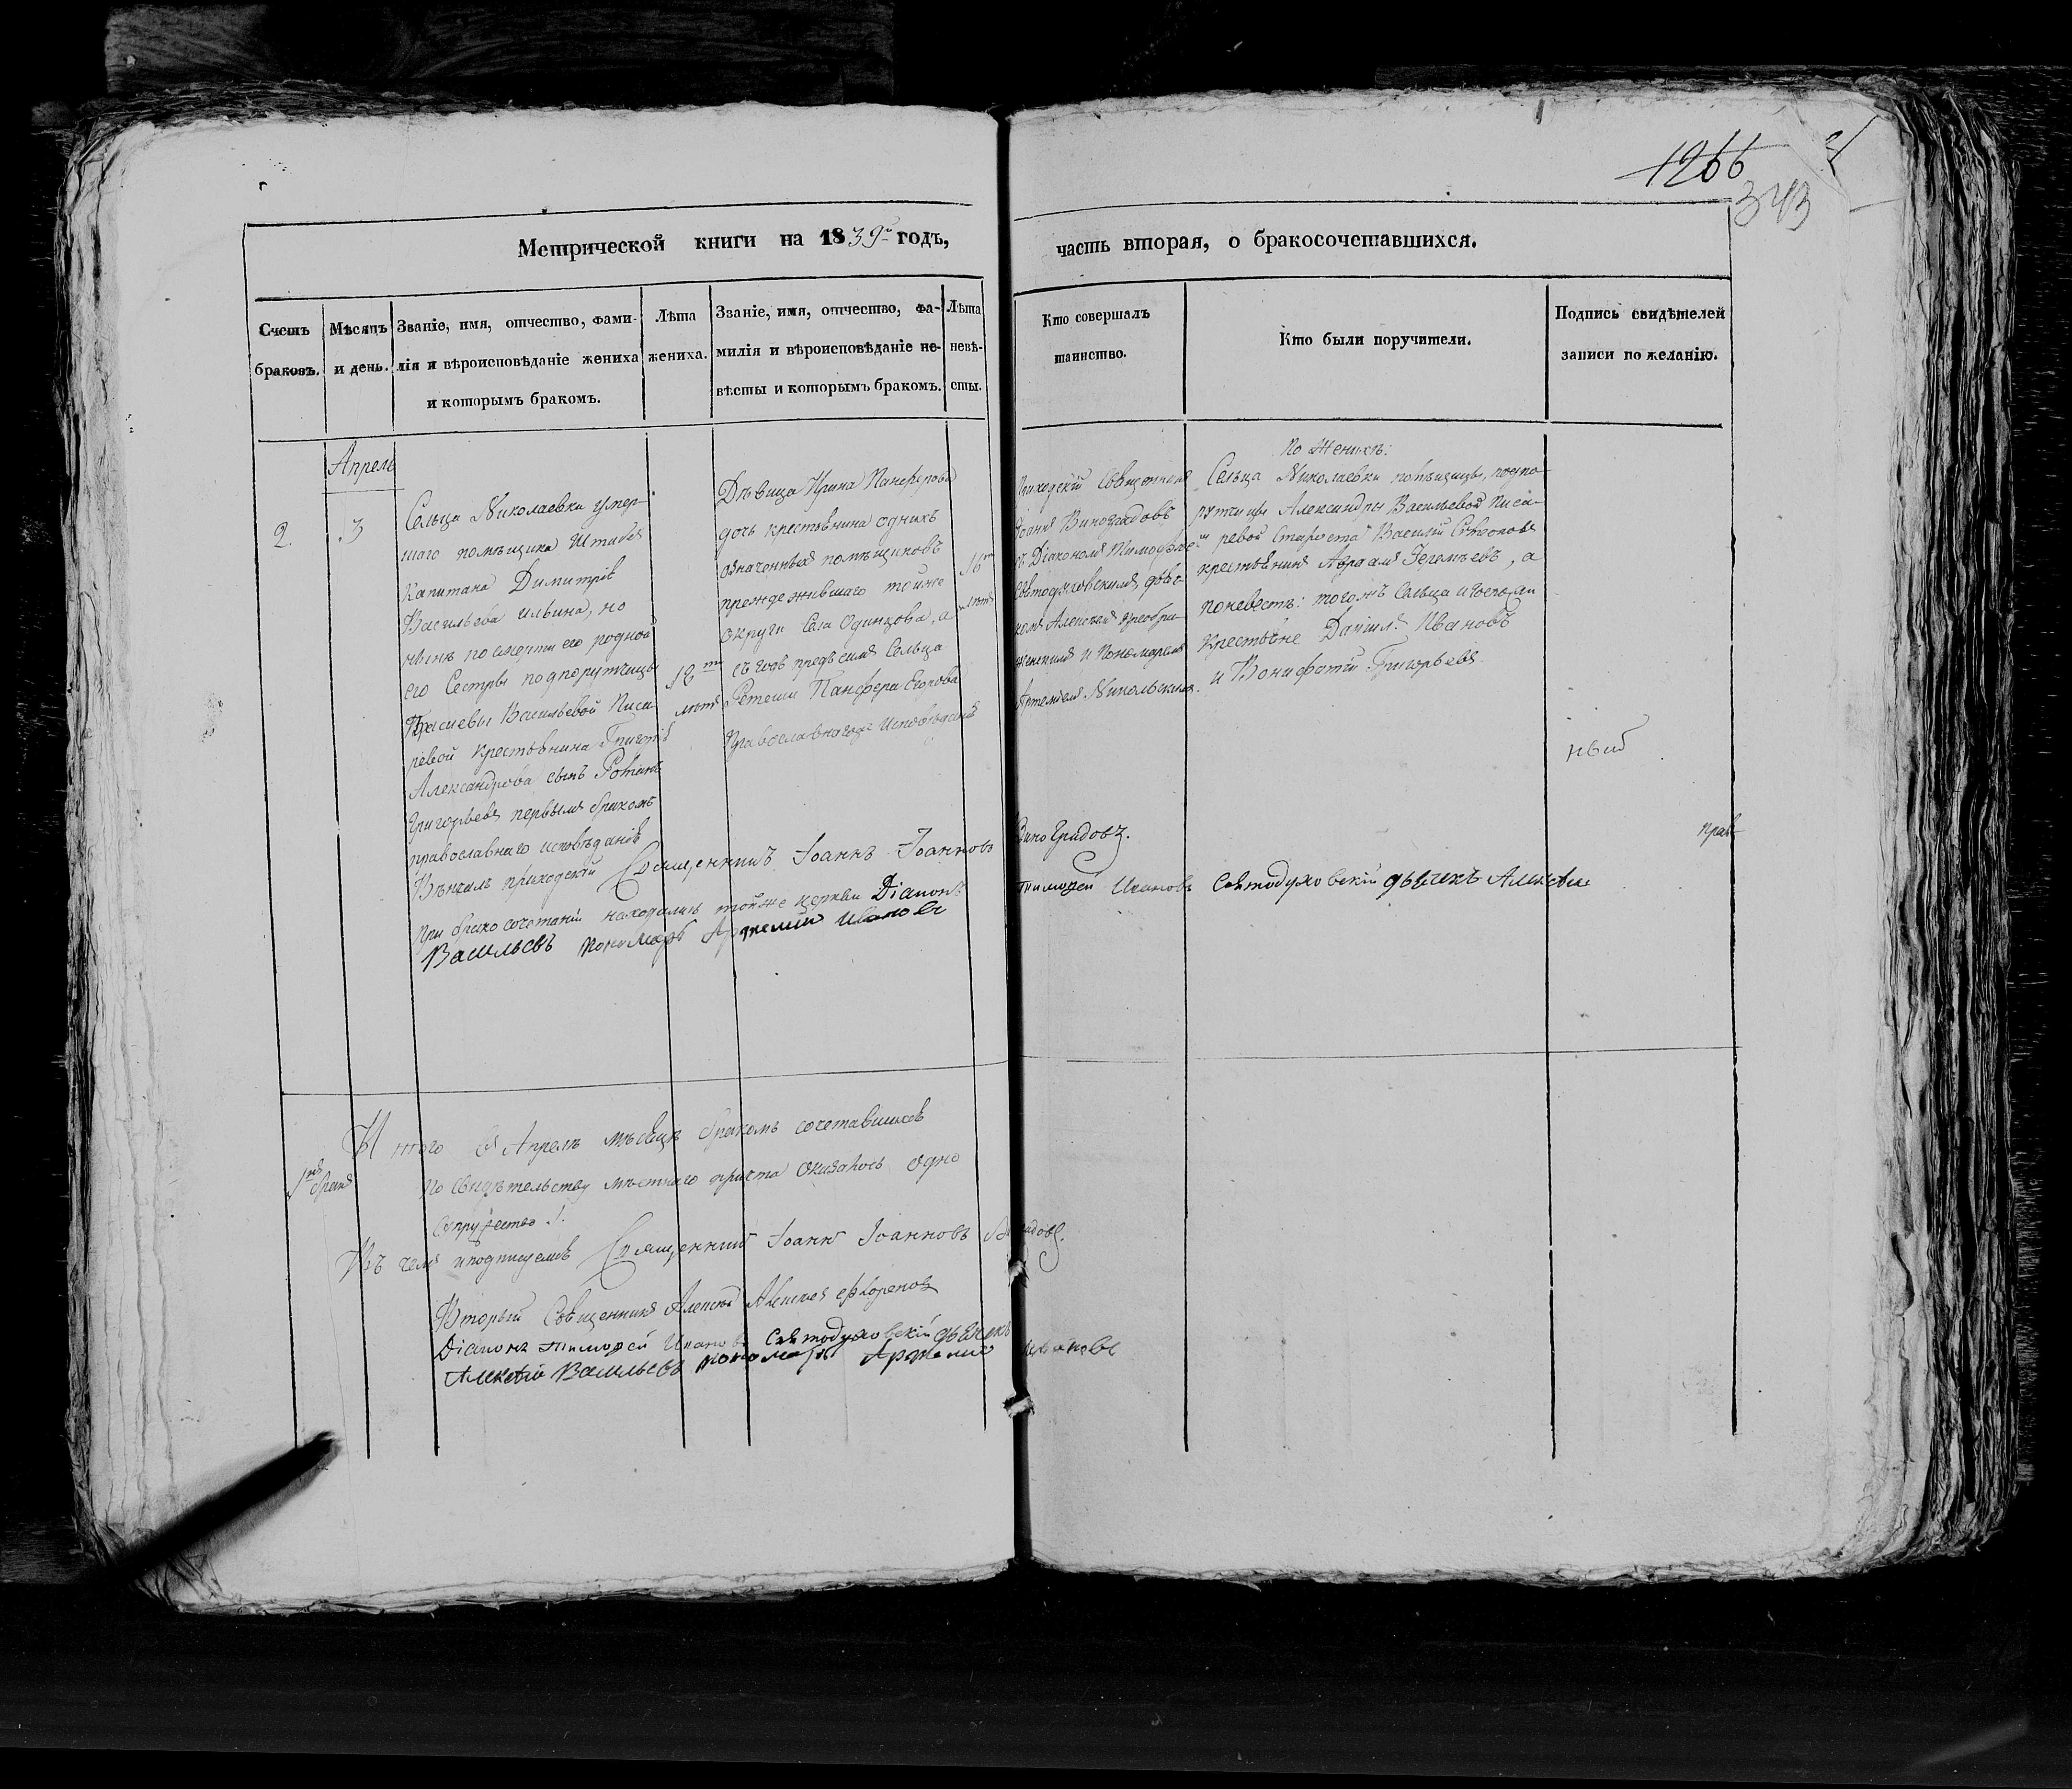 1266
343
Метрической книги на 1839й годъ,
часть вторая, о бракосочетавшихся.
Счетъ
браковъ.
Мѣсяцъ
и день.
Званіе, имя, отчество, фами-
лія и вѣроисповѣданіе жениха
и которымъ бракомъ.
Лѣта
жениха.
Званіе, имя, отчество, фа-
милія и вѣроисповѣданіе не-
вѣсты и которымъ бракомъ.
Лѣта
невѣ-
сты.
Кто совершалъ
таинство.
Кто были поручители.
Подпись свидѣтелей
записи по желанію.
2.
Апрель
3
Сельца Николаевки умер-
шаго помѣщика Штабсъ
Капитана Димитрія
Васильева Ильина, но
нынѣ по смерти его родной
его Сестры подпорутчицы
Васильевой Писа
ревой крестьянина Григорія
Александрова сынъ
Григорьевъ первымъ бракомъ
православнаго исповѣданія
18ти
лѣтъ
Дѣвица Ирина Панферова
дочь крестьянина однихъ
означенныхъ помѣщиковъ
прежде жившаго тойже
округи Села Одинцова, а
съ годъ предъ симъ Сельца
Ретеши Панфера Егорова
Православнаго Исповѣданія
16ти
лѣтъ
Приходскій Священникъ
Іоаннъ Виноградовъ
съ Діакономъ Тимофее
Святодуховскимъ, дья-
комъ Алексѣемъ Преобра-
женскимъ и Пономаремъ
Артеміемъ Никольскимъ.
По Женихѣ:
Сельца Николаевки помѣщицы, подпо-
рутчицы Александры Васильевой Писа-
ревой Староста Василій
крестьянинъ Авраамъ а
поневестѣ: тогожъ Сельца и господи
Крестьяне Даніилъ Ивановъ
и Вонифатій Григорьевъ.
Вѣнчалъ приходскій Священникъ Іоаннъ Іоанновъ Виноградовъ.
При бракосочетаніи находились тойже церкви Діаконъ Тимофей Ивановъ Святодуховскій дьячекъ Алексѣй
Васильевъ пономарь Артемій Ивановъ
Итого въ Апрелѣ мѣсяцѣ бракомъ сочетавшихся
по свидѣтельству мѣстнаго причта оказалось одно
супружество 1.
Въ чемъ и подписуемся Священникъ Іоаннъ Іоанновъ Виноградовъ.
Вторый Священникъ Алексѣй Алексеевъ
Діаконъ Тимофей Ивановъ Святодуховскій дьячекъ
Алексѣй Васильевъ пономарь Артемій Ивановъ